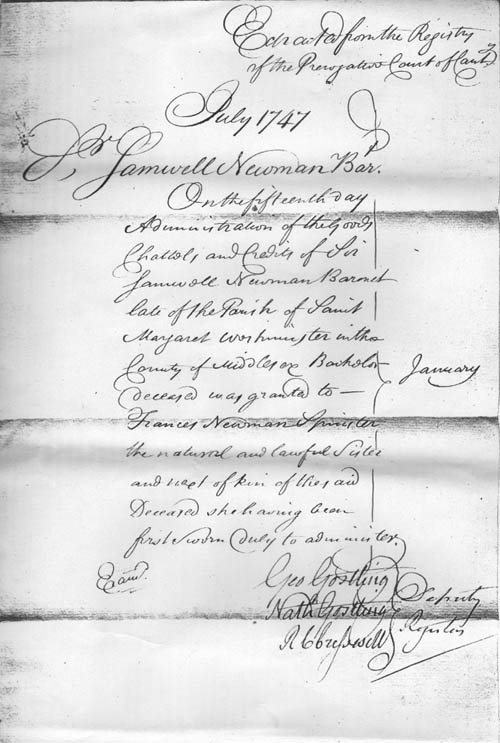 Extracted from the Registry
of the Prerogative Court of Canty
July 1747
Sr. Samwell Newman Bar.
On the fifteenth day
Administration of the Goods
Chattels and Credits of Sir
Samwell Newman Baronet
late of the Parish of Saint
Margaret Westminster in the
County of Middlesex Bachelor
January
deceased was granted to —
Frances Newman Spinster
the natural and lawful Sister
and next of kin of the said
Deceased she having been
first sworn duly to administer.
Exam'd.
Geo Gostling
Nath Gostling
R C Creswell
Deputy
Registers